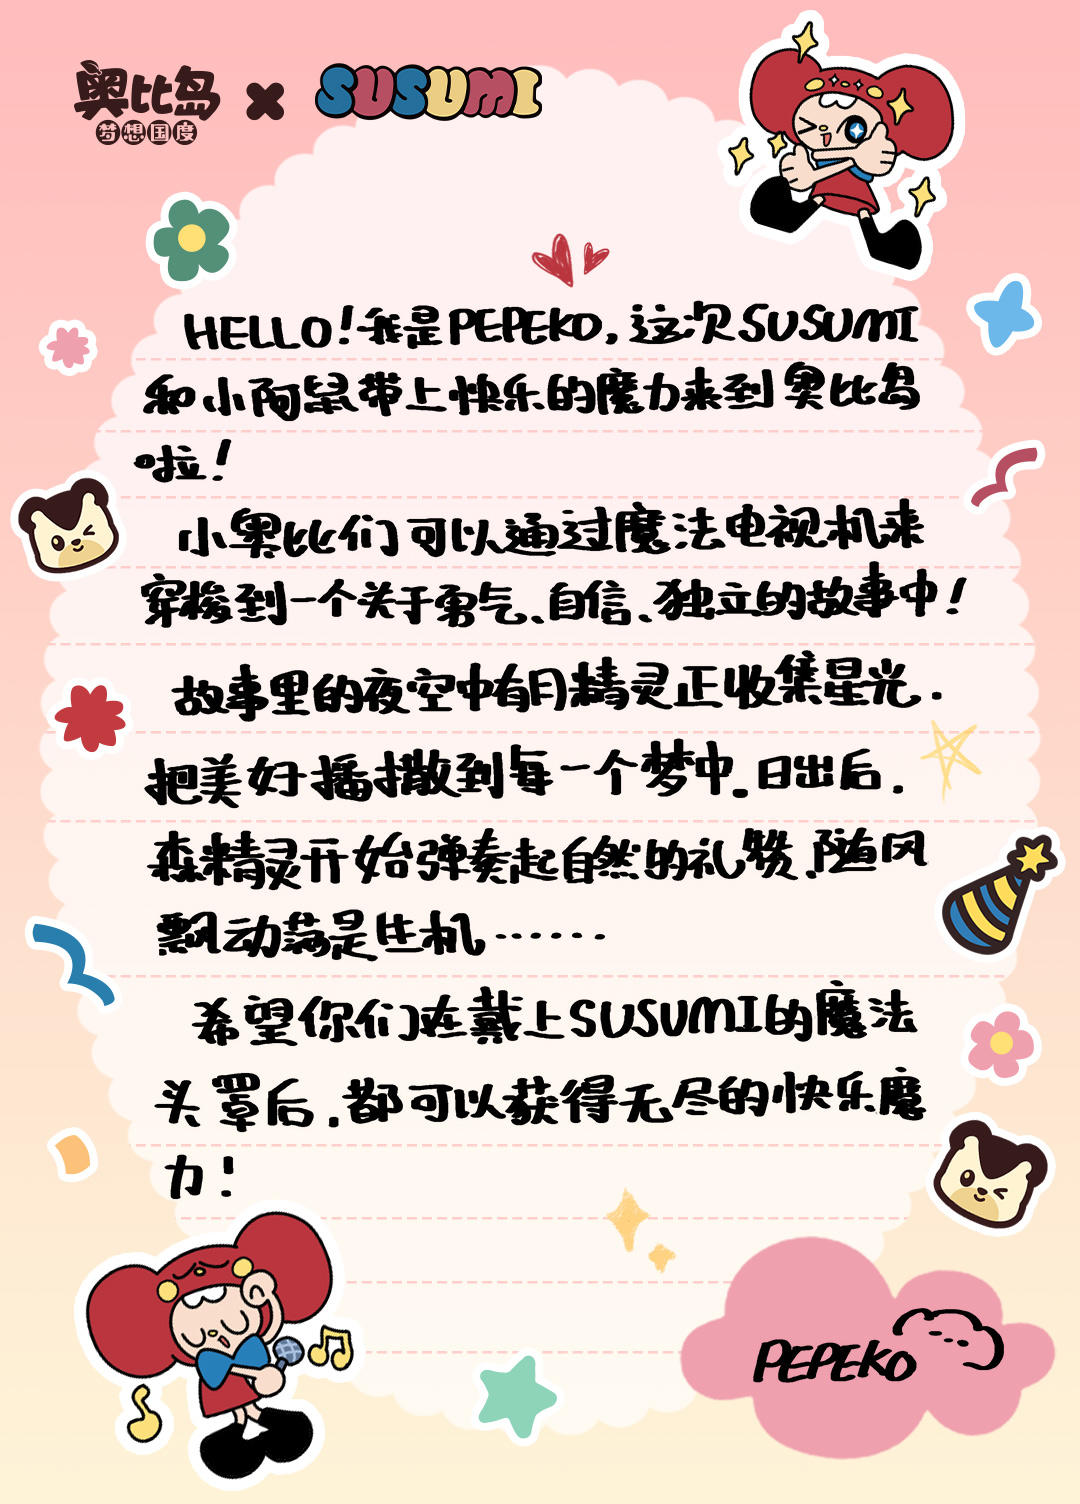 奥比岛 × SUSUMI
梦想国度
HELLO!我是PEPEKO,这次SUSUMI
和小阿鼠带上快乐的魔力来到奥比岛
啦!
小奥比们可以通过魔法电视机来
穿梭到一个关于勇气、自信、独立的故事中!
故事里的夜空中有月精灵正收集星光.
把美好播撒到每一个梦中.日出后.
森精灵开始弹奏起自然的礼赞.随风
飘动荡是生机……
希望你们在戴上SUSUMI的魔法
头罩后.都可以获得无尽的快乐魔
力!
PEPEKO